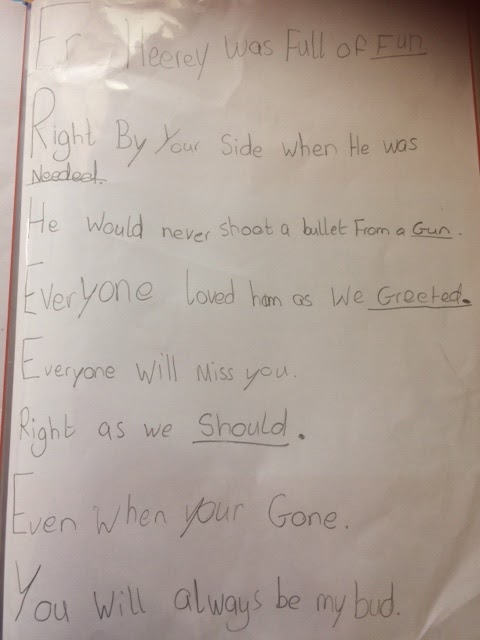 Fr Heerey was Full of Fun
Right By Your Side when He was
Needed.
He would never shoot a bullet From a Gun.
Everyone loved ham as We Greeted.
Everyone Will Miss you.
Right as we Should.
Even when your Gone.
You will always be my bud.